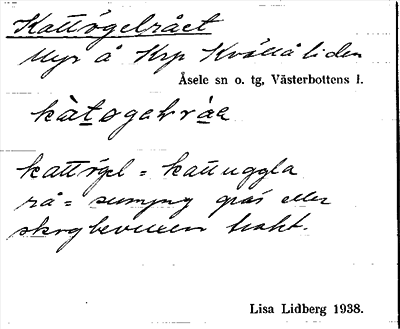 Kattögelrået
Myr å Krp Kvällåliden
Åsele sn o. tg, Västerbottens l.
kàtøgəlråa
kattögel = kattuggla
rå = sumpig gräs eller
skogbevuxen trakt.
Lisa Lidberg 1938.